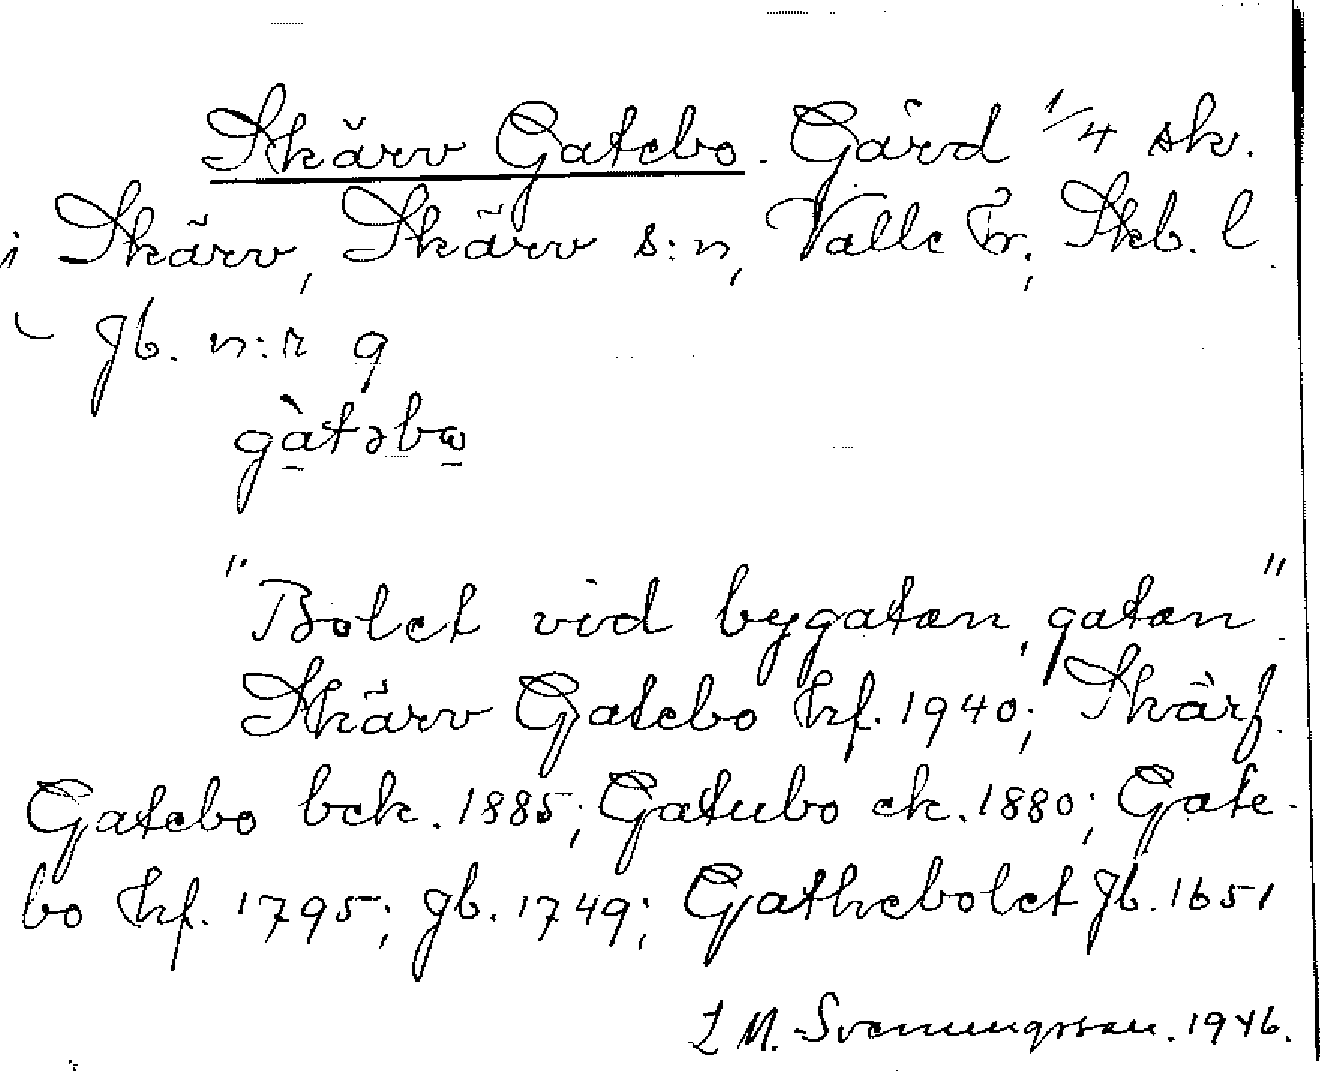 Skärv Gatebo. Gård 1/4 sk.
i Skärv, Skärv s:n, Valle hr; Skb. l.
gb. n:r 9
gàtəbω
"Bolet vid bygatan, gatan"
Skärv Gatebo hf. 1940; Skärf.
Gatebo bek. 1885; Gatubo ek. 1880; Gate-
bo hf. 1795; gb. 1749; Gathebolet gb. 1651
L M. Svenungsson. 1946.